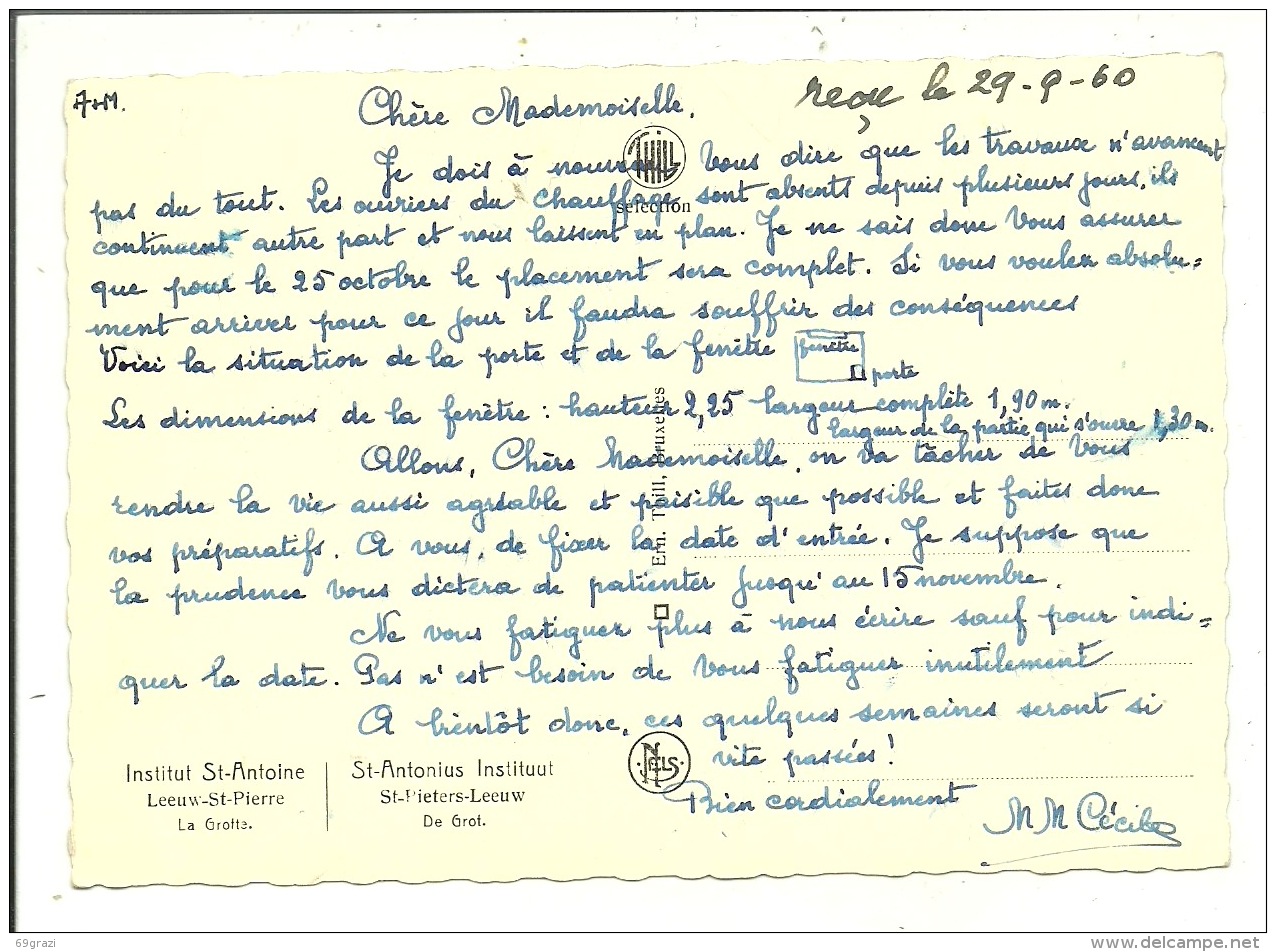 A+M.
reçu le 29-9-60
Chère Mademoiselle,
Je dois à nouveau Vous dire que les travaux n'avancent
pas du tout. Les ouvriers du chauffage sont absents depuis plusieurs jours, ils
continuent autre part et nous laissent en plan. Je ne sais donc Vous assurer
que pour le 25 octobre le placement sera complet. Si vous voulez absolu=
ment arriver pour ce jour il faudra souffrir des conséquences
Voici la situation de la porte et de la fenêtre
fenêtre
porte
Les dimensions de la fenêtre : hauteur 2,25 largeur complète 1,90 m.
largeur de la partie qui s'ouvre 1,30 m.
Allons, Chère Mademoiselle, on va tâcher de Vous
rendre la vie aussi agréable et paisible que possible et faites donc
vos préparatifs. A vous, de fixer la date d'entrée. Je suppose que
la prudence Vous dictera de patienter jusqu'au 15 novembre.
Ne vous fatiguer plus à nous écrire sauf pour indi=
quer la date. Pas n'est besoin de Vous fatiguer inutilement
A bientôt donc, ces quelques semaines seront si
vite passées !
Bien cordialement
M M Cécile
THILL
sélection
Ern. Thill, Bruxelles
NELS
Institut St-Antoine
Leeuw-St-Pierre
La Grotte.
St-Antonius Instituut
St-Pieters-Leeuw
De Grot.
69grazi
www.delcampe.net